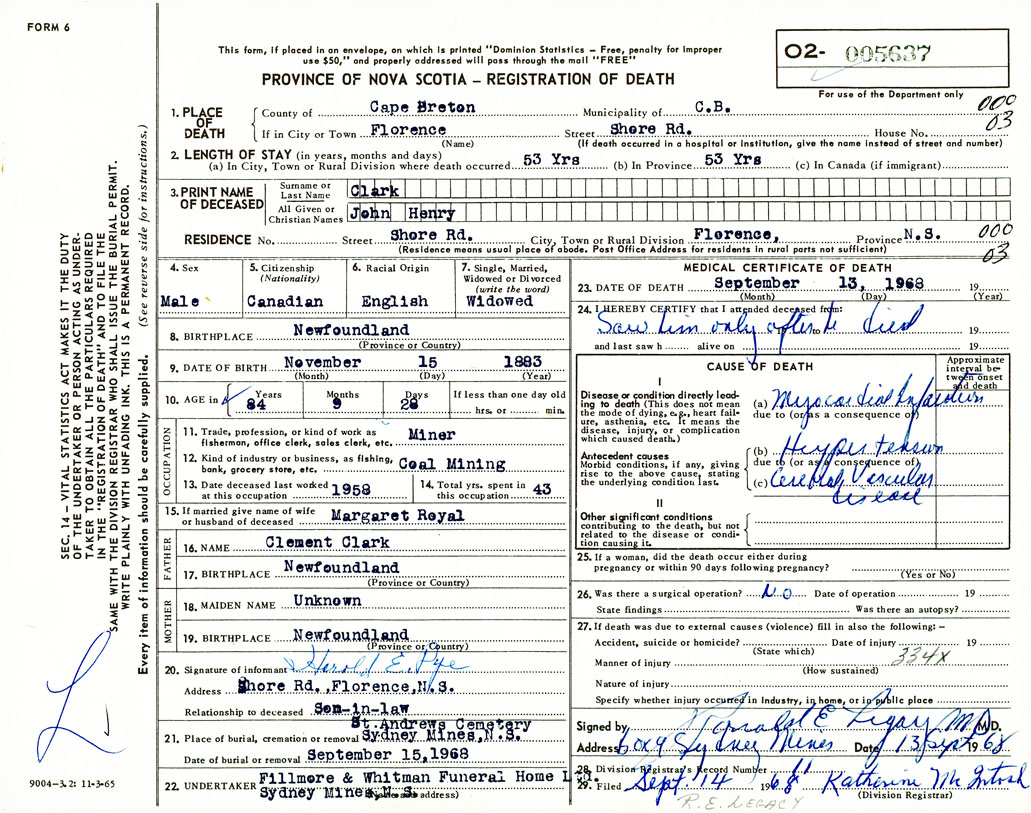 FORM 6
This form, if placed in an envelope, on which is printed "Dominion Statistics — Free, penalty for improper
use $50," and properly addressed will pass through the mail "FREE"
PROVINCE OF NOVA SCOTIA — REGISTRATION OF DEATH
O2- 005637
For use of the Department only
000
03
1. PLACE OF DEATH
County of Cape Breton Municipality of C.B.
If in City or Town Florence Street Shore Rd. House No.
(Name) (If death occurred in a hospital or institution, give the name instead of street and number)
2. LENGTH OF STAY (in years, months and days)
(a) In City, Town or Rural Division where death occurred 53 Yrs (b) In Province 53 Yrs (c) In Canada (if immigrant)
3. PRINT NAME OF DECEASED
Surname or Last Name Clark
All Given or Christian Names John Henry
RESIDENCE No. Street Shore Rd. City, Town or Rural Division Florence, Province N.S. 000
(Residence means usual place of abode. Post Office Address for residents in rural parts not sufficient) 03
4. Sex Male
5. Citizenship (Nationality) Canadian
6. Racial Origin English
7. Single, Married, Widowed or Divorced (write the word) Widowed
8. BIRTHPLACE Newfoundland
(Province or Country)
9. DATE OF BIRTH November 15 1883
(Month) (Day) (Year)
10. AGE in Years 84 Months 9 Days 28 If less than one day old hrs. or min.
OCCUPATION
11. Trade, profession, or kind of work as fisherman, office clerk, sales clerk, etc. Miner
12. Kind of industry or business, as fishing, bank, grocery store, etc. Coal Mining
13. Date deceased last worked at this occupation 1958
14. Total yrs. spent in this occupation 43
15. If married give name of wife or husband of deceased Margaret Royal
FATHER
16. NAME Clement Clark
17. BIRTHPLACE Newfoundland
(Province or Country)
MOTHER
18. MAIDEN NAME Unknown
19. BIRTHPLACE Newfoundland
(Province or Country)
20. Signature of informant Harold E. Pye
Address Shore Rd.,Florence,N.S.
Relationship to deceased Son-in-law
21. Place of burial, cremation or removal St.Andrews Cemetery Sydney Mines,N.S.
Date of burial or removal September 15,1968
22. UNDERTAKER Fillmore & Whitman Funeral Home Ltd.
Sydney Mines,N.S. address)
MEDICAL CERTIFICATE OF DEATH
23. DATE OF DEATH September 13, 1968 19
(Month) (Day) (Year)
24. I HEREBY CERTIFY that I attended deceased from:
Saw him only after he died to 19
and last saw h alive on 19
CAUSE OF DEATH
Approximate interval between onset and death
I
Disease or condition directly leading to death (This does not mean the mode of dying, e.g., heart failure, asthenia, etc. It means the disease, injury, or complication which caused death.)
(a) Myocardial Infarction
due to (or as a consequence of)
Antecedent causes
Morbid conditions, if any, giving rise to the above cause, stating the underlying condition last.
(b) Hypertension
due to (or as a consequence of)
(c) Cerebral Vascular disease
II
Other significant conditions contributing to the death, but not related to the disease or condition causing it.
25. If a woman, did the death occur either during pregnancy or within 90 days following pregnancy?
(Yes or No)
26. Was there a surgical operation? No Date of operation 19
State findings Was there an autopsy?
27. If death was due to external causes (violence) fill in also the following: —
Accident, suicide or homicide? Date of injury 19
(State which) 334X
Manner of injury
(How sustained)
Nature of injury
Specify whether injury occurred in Industry, in home, or in public place
Signed by Ronald E Legay MD M.D.
Address Box 9 Sydney Mines Date 13 Sept 1968
28. Division Registrar's Record Number 61
29. Filed Sept. 14 1968 Katherine McIntosh
(Division Registrar)
R.E. LEGACY
SEC. 14 — VITAL STATISTICS ACT MAKES IT THE DUTY
OF THE UNDERTAKER OR PERSON ACTING AS UNDER-
TAKER TO OBTAIN ALL THE PARTICULARS REQUIRED
IN THE "REGISTRATION OF DEATH" AND TO FILE THE
SAME WITH THE DIVISION REGISTRAR WHO SHALL ISSUE THE BURIAL PERMIT.
WRITE PLAINLY WITH UNFADING INK. THIS IS A PERMANENT RECORD.
Every item of information should be carefully supplied. (See reverse side for instructions.)
9004-3.2: 11-3-65